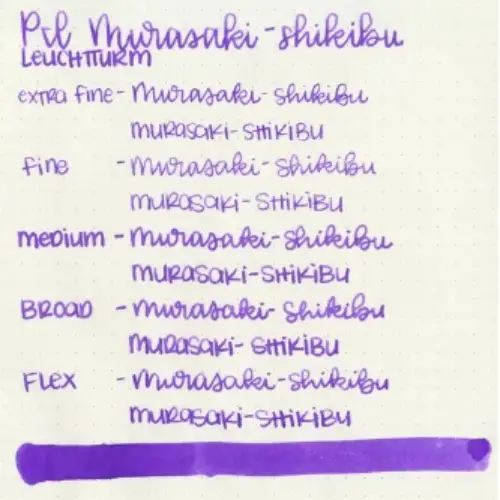 Pil Murasaki-shikibu
LEUCHTTURM
extra fine - Murasaki-shikibu
MURASAKI-SHIKIBU
fine - Murasaki-shikibu
MURASAKI-SHIKIBU
medium - Murasaki-shikibu
MURASAKI-SHIKIBU
BROAD - Murasaki-shikibu
MURASAKI-SHIKIBU
FLEX - Murasaki-shikibu
MURASAKI-SHIKIBU